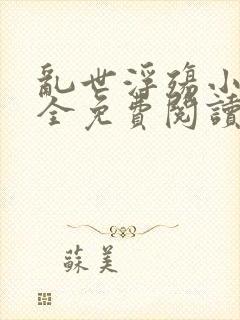 亂世浮殤小
全免費閱讀
蘇美